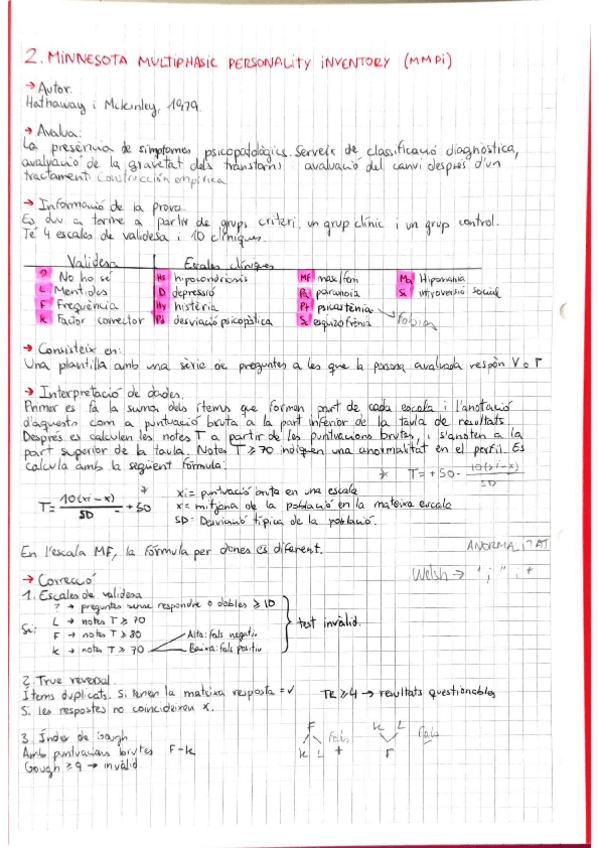 2. MINNESOTA MULTIPHASIC PERSONALITY INVENTORY (MMPI)
→ Autor.
Hathaway i Mckinley, 1979.
→ Avalua:
La presència de símptomes psicopatològics. Serveix de classificació diagnòstica,
avaluació de la gravetat dels transtorns avaluació del canvi després d'un
tractament Construcción empírica
→ Informació de la prova.
Es duu a terme a partir de grups criteri, un grup clínic i un grup control.
Té 4 escales de validesa i 10 clíniques.
Validesa Escales clíniques
? No ho sé Hs hipocondriosis MF masc/fem Ma Hipomania
L Mentides D depressió Pa paranoia Si introversió social
F Freqüència Hy histèria Pt psicastènia → Fobias
K Factor corrector Pd desviació psicopàtica Sc esquizofrènia
→ Consisteix en:
Una plantilla amb una sèrie de preguntes a les que la persona avaluada respòn V o F
→ Interpretació de dades.
Primer es fa la suma dels ítems que formen part de cada escala i l'anotació
d'aquesta com a puntuació bruta a la part inferior de la taula de resultats
Després es calculen les notes T a partir de les puntuacions brutes, i s'anoten a la
part superior de la taula. Notes T ≥ 70 indiquen una anormalitat en el perfil. Es
calcula amb la següent fórmula:
* T = +50 · 10(xi-x) / SD
T = 10(xi-x) / SD + 50 *
xi = puntuació bruta en una escala
x = mitjana de la població en la mateixa escala
SD = Desviació típica de la població.
En l'escala MF, la fórmula per dones és diferent.
ANORMALITAT
Welsh →
→ Correcció
1. Escales de validesa
Si:
? → preguntes sense respondre o dobles ≥ 10
L → notes T ≥ 70
F → notes T > 80
K → notes T > 70
Alta: fals negatiu
Baixa: fals positiu
test invàlid.
2. True reversal.
Items duplicats. Si tenen la mateixa resposta = ✓ TR ≥ 4 → resultats questionables
Si les respostes no coincideixen x.
3. Índex de Gough
Amb puntuacions brutes F-K
Gough ≥ 9 → invàlid
F
K L
Fals
+
K L
F
Fals
-